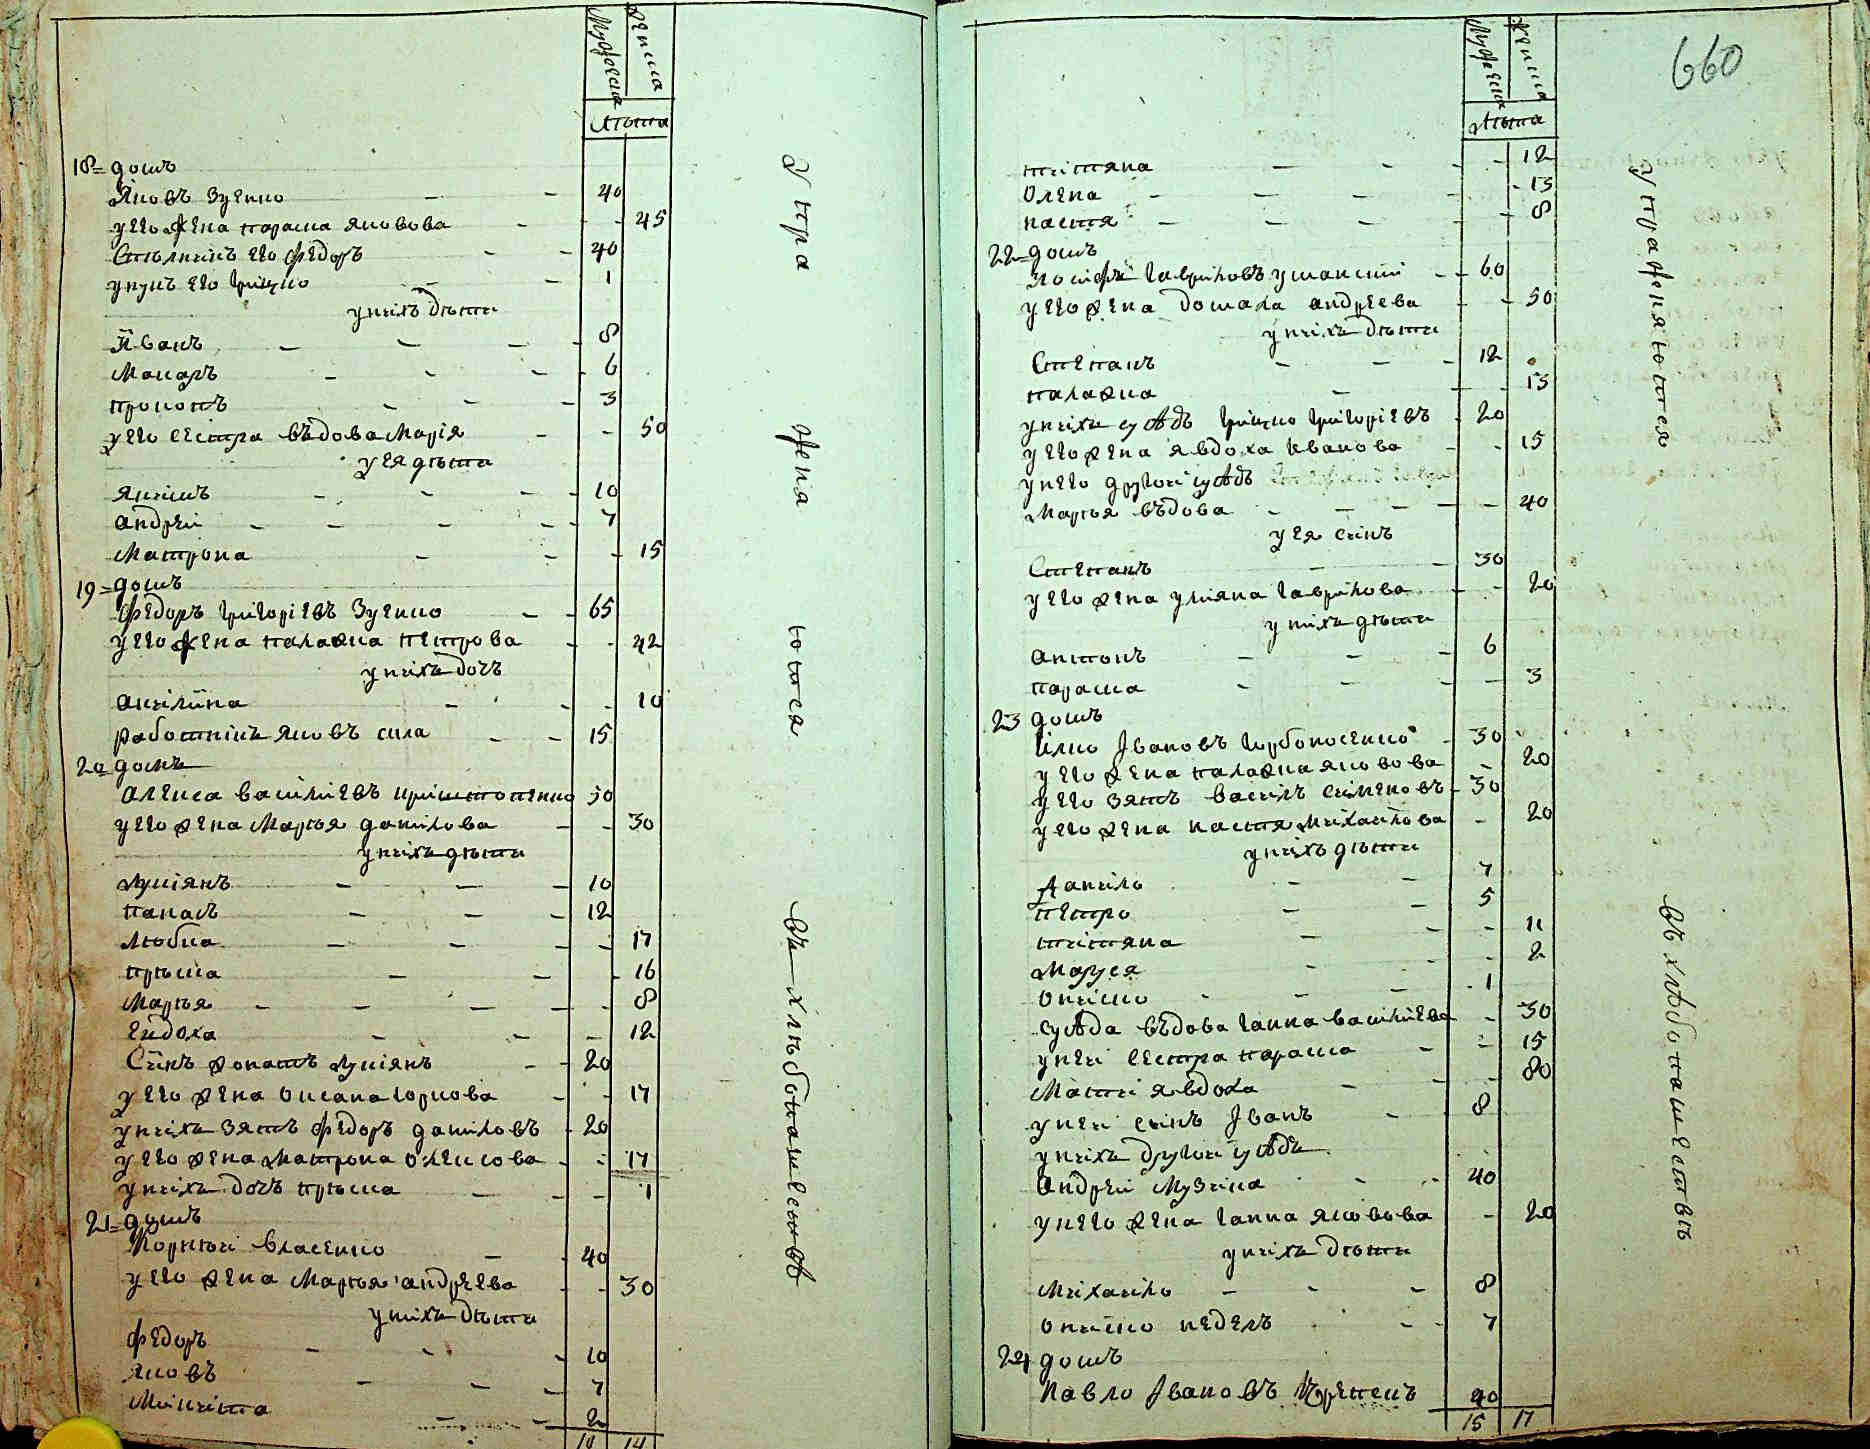 Мужеска
Женска
Лѣта
18 = домъ
Яковъ Зуенко - - 40
у его жена параска яковова - - 45
Стрѣлникъ его Федоръ - - 40
унукъ его грицко - - 1
у нихъ дѣти
Иванъ - - - 8
Макаръ - - - 6
прокопъ - - - 3
у его сестра вѣдова Марія - - 50
у ея дѣти
якимъ - - - - 10
андреи - - - - 7
Матрона - - - 15
19 = домъ
Федоръ григоріевъ Зуенко - - 65
у его жена палажка петрова - - 42
у нихъ дочъ
акилина - - - 10
работникъ яковъ сила - - 15
20 = домъ
алекса василиевъ 50
у его жена Марья данилова - - 30
у нихъ дѣти
лукіянъ - - - 10
панасъ - - - 12
любка - - - - 17
пріська - - - 16
Марья - - - - - 8
евдоха - - - 12
Синъ жонатъ лукіянъ - - 20
у его жена оксана горкова - - 17
у нихъ зять федоръ даниловъ - 20
у его жена Матрона олексова - - 17
у нихъ дочъ пріська - - - 1
21 = домъ
Корнѣи власенко - 40
у его жена Марья андреева - - 30
у нихъ дѣти
Федоръ - - - 10
яковъ - - - 7
Микита - - 2
14
Упра
жня
ются
въ хлѣбопашествѣ
660
Мужеска
Женска
Лѣта
тетяна - - - - 12
Олена - - - - - 13
настя - - - - - 8
22 = домъ
Іосифъ гавриловъ уманскій - - 60
у его жена домаха андреева - - 50
у нихъ дѣти
Степанъ - - - 12
палажка - - 13
у нихъ сусѣдъ грицко григоріевъ - 20
у его жена явдоха иванова - - 15
у него другои сусѣдъ
Марья вѣдова - - - - - 40
у ея синъ
Степанъ - - 30
у его жена уліяна гаврилова - - 20
у нихъ дѣти
антонъ - - - 6
параска - - - - 3
23 домъ
Ілко Івановъ горбоносенко - 30
у его жена палажка яковова - 20
у его зятъ василъ сименовъ - 30
у его жена настя михаилова - 20
у нихъ дѣти
данило - - 7
петро - - 5
тетяна - - - 11
маруся - - 2
ониско - - - 1
сусѣда вѣдова ганна василиева - 30
у неи сестра параска - - 15
Мати явдоха - - - 80
у неи синъ Іванъ - 8
у нихъ другои сусѣдъ
андреи Музика - - 40
у него жена ганна яковова - 20
у нихъ дѣти
михаило - - - 8
ониско неделъ - - 7
24 домъ
Павло Івановъ 40
15 17
Упражняются
въ хлѣбопашествѣ